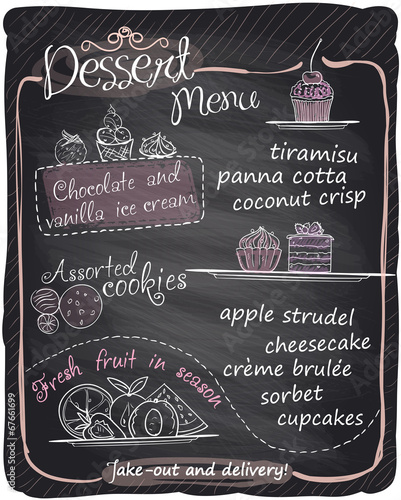 Dessert
Menu
Chocolate and
vanilla ice cream
tiramisu
panna cotta
coconut crisp
Assorted
cookies
apple strudel
cheesecake
crème brulée
sorbet
cupcakes
Fresh fruit in season
Take-out and delivery!
#67661699